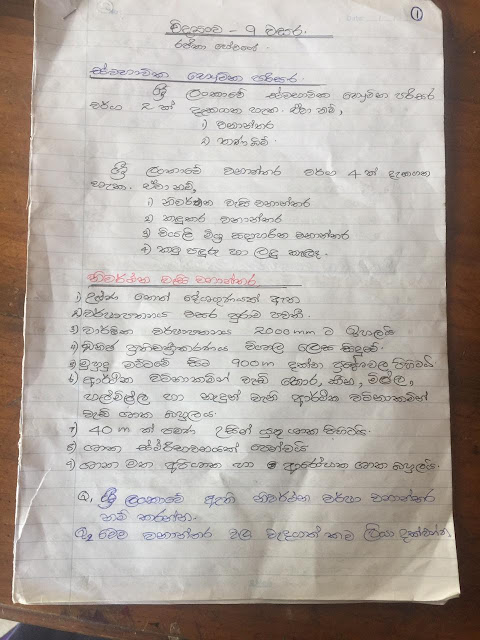 ①
විද්‍යාව - 9 වසර.
ස්වභාවික භෞමික පරිසර.
ශ්‍රී ලංකාවේ ස්වභාවික භෞමික පරිසර
වර්ග 2 ක් දැකගත හැක. ඒවා නම්,
1) වනාන්තර
2) තෘණ බිම්.
ශ්‍රී ලංකාවේ වනාන්තර වර්ග 4 ක් දැකගත
හැක. ඒවා නම්,
1) නිවර්තන වැසි වනාන්තර
2) කඳුකර වනාන්තර
3) වියලි මිශ්‍ර සදාහරිත වනාන්තර
4) කටු පඳුරු හා ලඳු කැලෑ.
නිවර්තන වැසි වනාන්තර
1) උෂ්ණ තෙත් දේශගුණයක් ඇත
2) වර්ෂාපතනය වසර පුරාම පවතී.
3) වාර්ෂික වර්ෂාපතනය 2000mm ට ඉහලයි
4) ඛනිජ ප්‍රතිචක්‍රීකරණය වේගවත් ලෙස සිදුවේ.
5) මුහුදු මට්ටමේ සිට 900m දක්වා ප්‍රදේශවල පිහිටයි.
6) ආර්ථික වටිනාකමින් වැඩි හොර, නා, මිල්ල,
හල්මිල්ල හා නැදුන් වැනි ආර්ථික වටිනාකමින්
වැඩි ශාක බහුලය.
7) 40 m ක් පමණ උසින් යුතු ශාක පිහිටයි.
8) ශාක ස්ථරීභවනයක් පෙන්වයි
9) ශාක මත අපිශාක හා ආරෝහක ශාක බහුලයි.
Q1 ශ්‍රී ලංකාවේ ඇති නිවර්තන වර්ෂා වනාන්තර
නම් කරන්න.
Q2 මෙම වනාන්තර වල වැදගත් කම ලියා දක්වන්න.